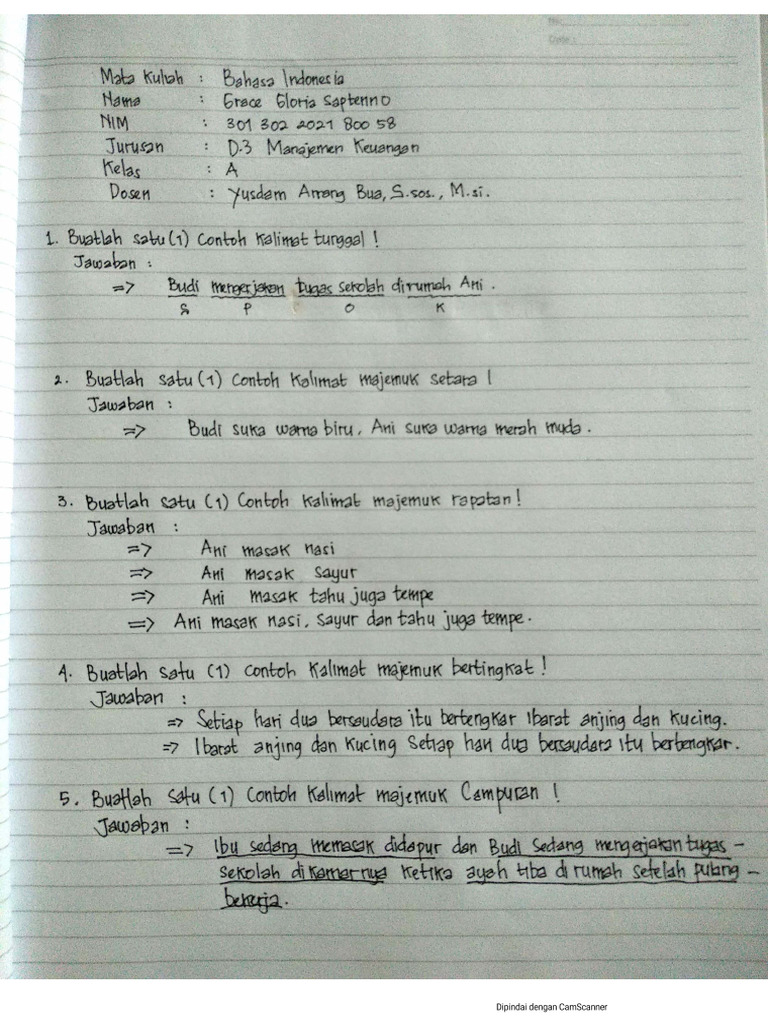 Mata Kuliah : Bahasa Indonesia
Nama : Grace Gloria Saptenno
NIM : 301 302 2021 800 58
Jurusan : D.3 Manajemen Keuangan
Kelas : A
Dosen : Yusdam Arrang Bua, S.sos., M.si.
1. Buatlah satu (1) Contoh kalimat tunggal !
Jawaban :
=> Budi mengerjakan tugas sekolah dirumah Ani .
S P O K
2. Buatlah satu (1) Contoh kalimat majemuk setara !
Jawaban :
=> Budi suka warna biru, Ani suka warna merah muda .
3. Buatlah satu (1) Contoh kalimat majemuk rapatan !
Jawaban :
=> Ani masak nasi
=> Ani masak sayur
=> Ani masak tahu juga tempe
=> Ani masak nasi, sayur dan tahu juga tempe.
4. Buatlah satu (1) Contoh kalimat majemuk bertingkat !
Jawaban :
=> Setiap hari dua bersaudara itu bertengkar ibarat anjing dan kucing.
=> Ibarat anjing dan kucing setiap hari dua bersaudara itu bertengkar.
5. Buatlah satu (1) Contoh kalimat majemuk Campuran !
Jawaban :
=> Ibu sedang memasak didapur dan Budi sedang mengerjakan tugas –
sekolah di kamarnya ketika ayah tiba di rumah setelah pulang –
bekerja.
Dipindai dengan CamScanner